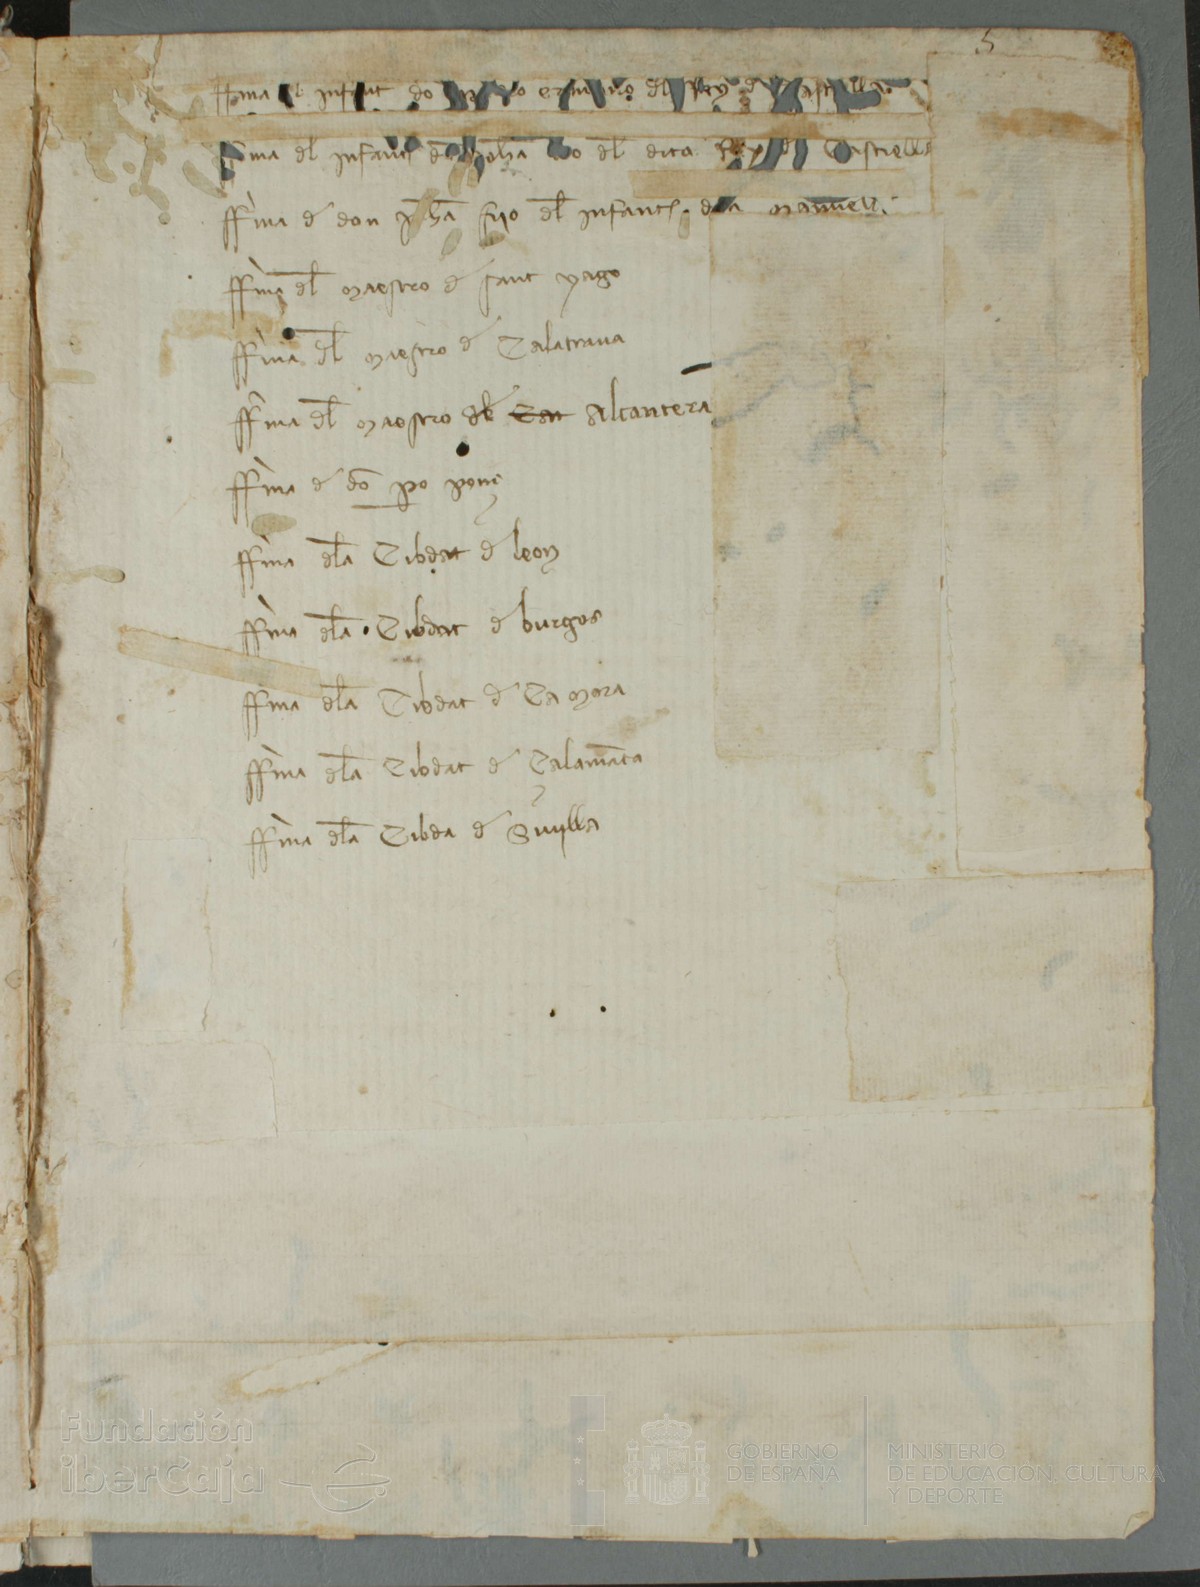 5
ffirma dl infant do pedro ermano dl Rey d Castiella
ffirma dl infant d Johan fijo dl dito Rey d Castiella
ffirma d don Johā fijo dl infant don manuell.
ffirma dl maestro d sant yago
ffirma dl maestro d Calatraua
ffirma dl maestro de Cat Alcantera
ffirma d dō po ponç
ffirma dla Cibdat d leon
ffirma dla Cibdat d burgos
ffirma dla Cibdat d Çamora
ffirma dla Cibdat d Çalamāca
ffirma dla Cibda d Suylla
Fundación
iberCaja
GOBIERNO
DE ESPAÑA
MINISTERIO
DE EDUCACIÓN, CULTURA
Y DEPORTE